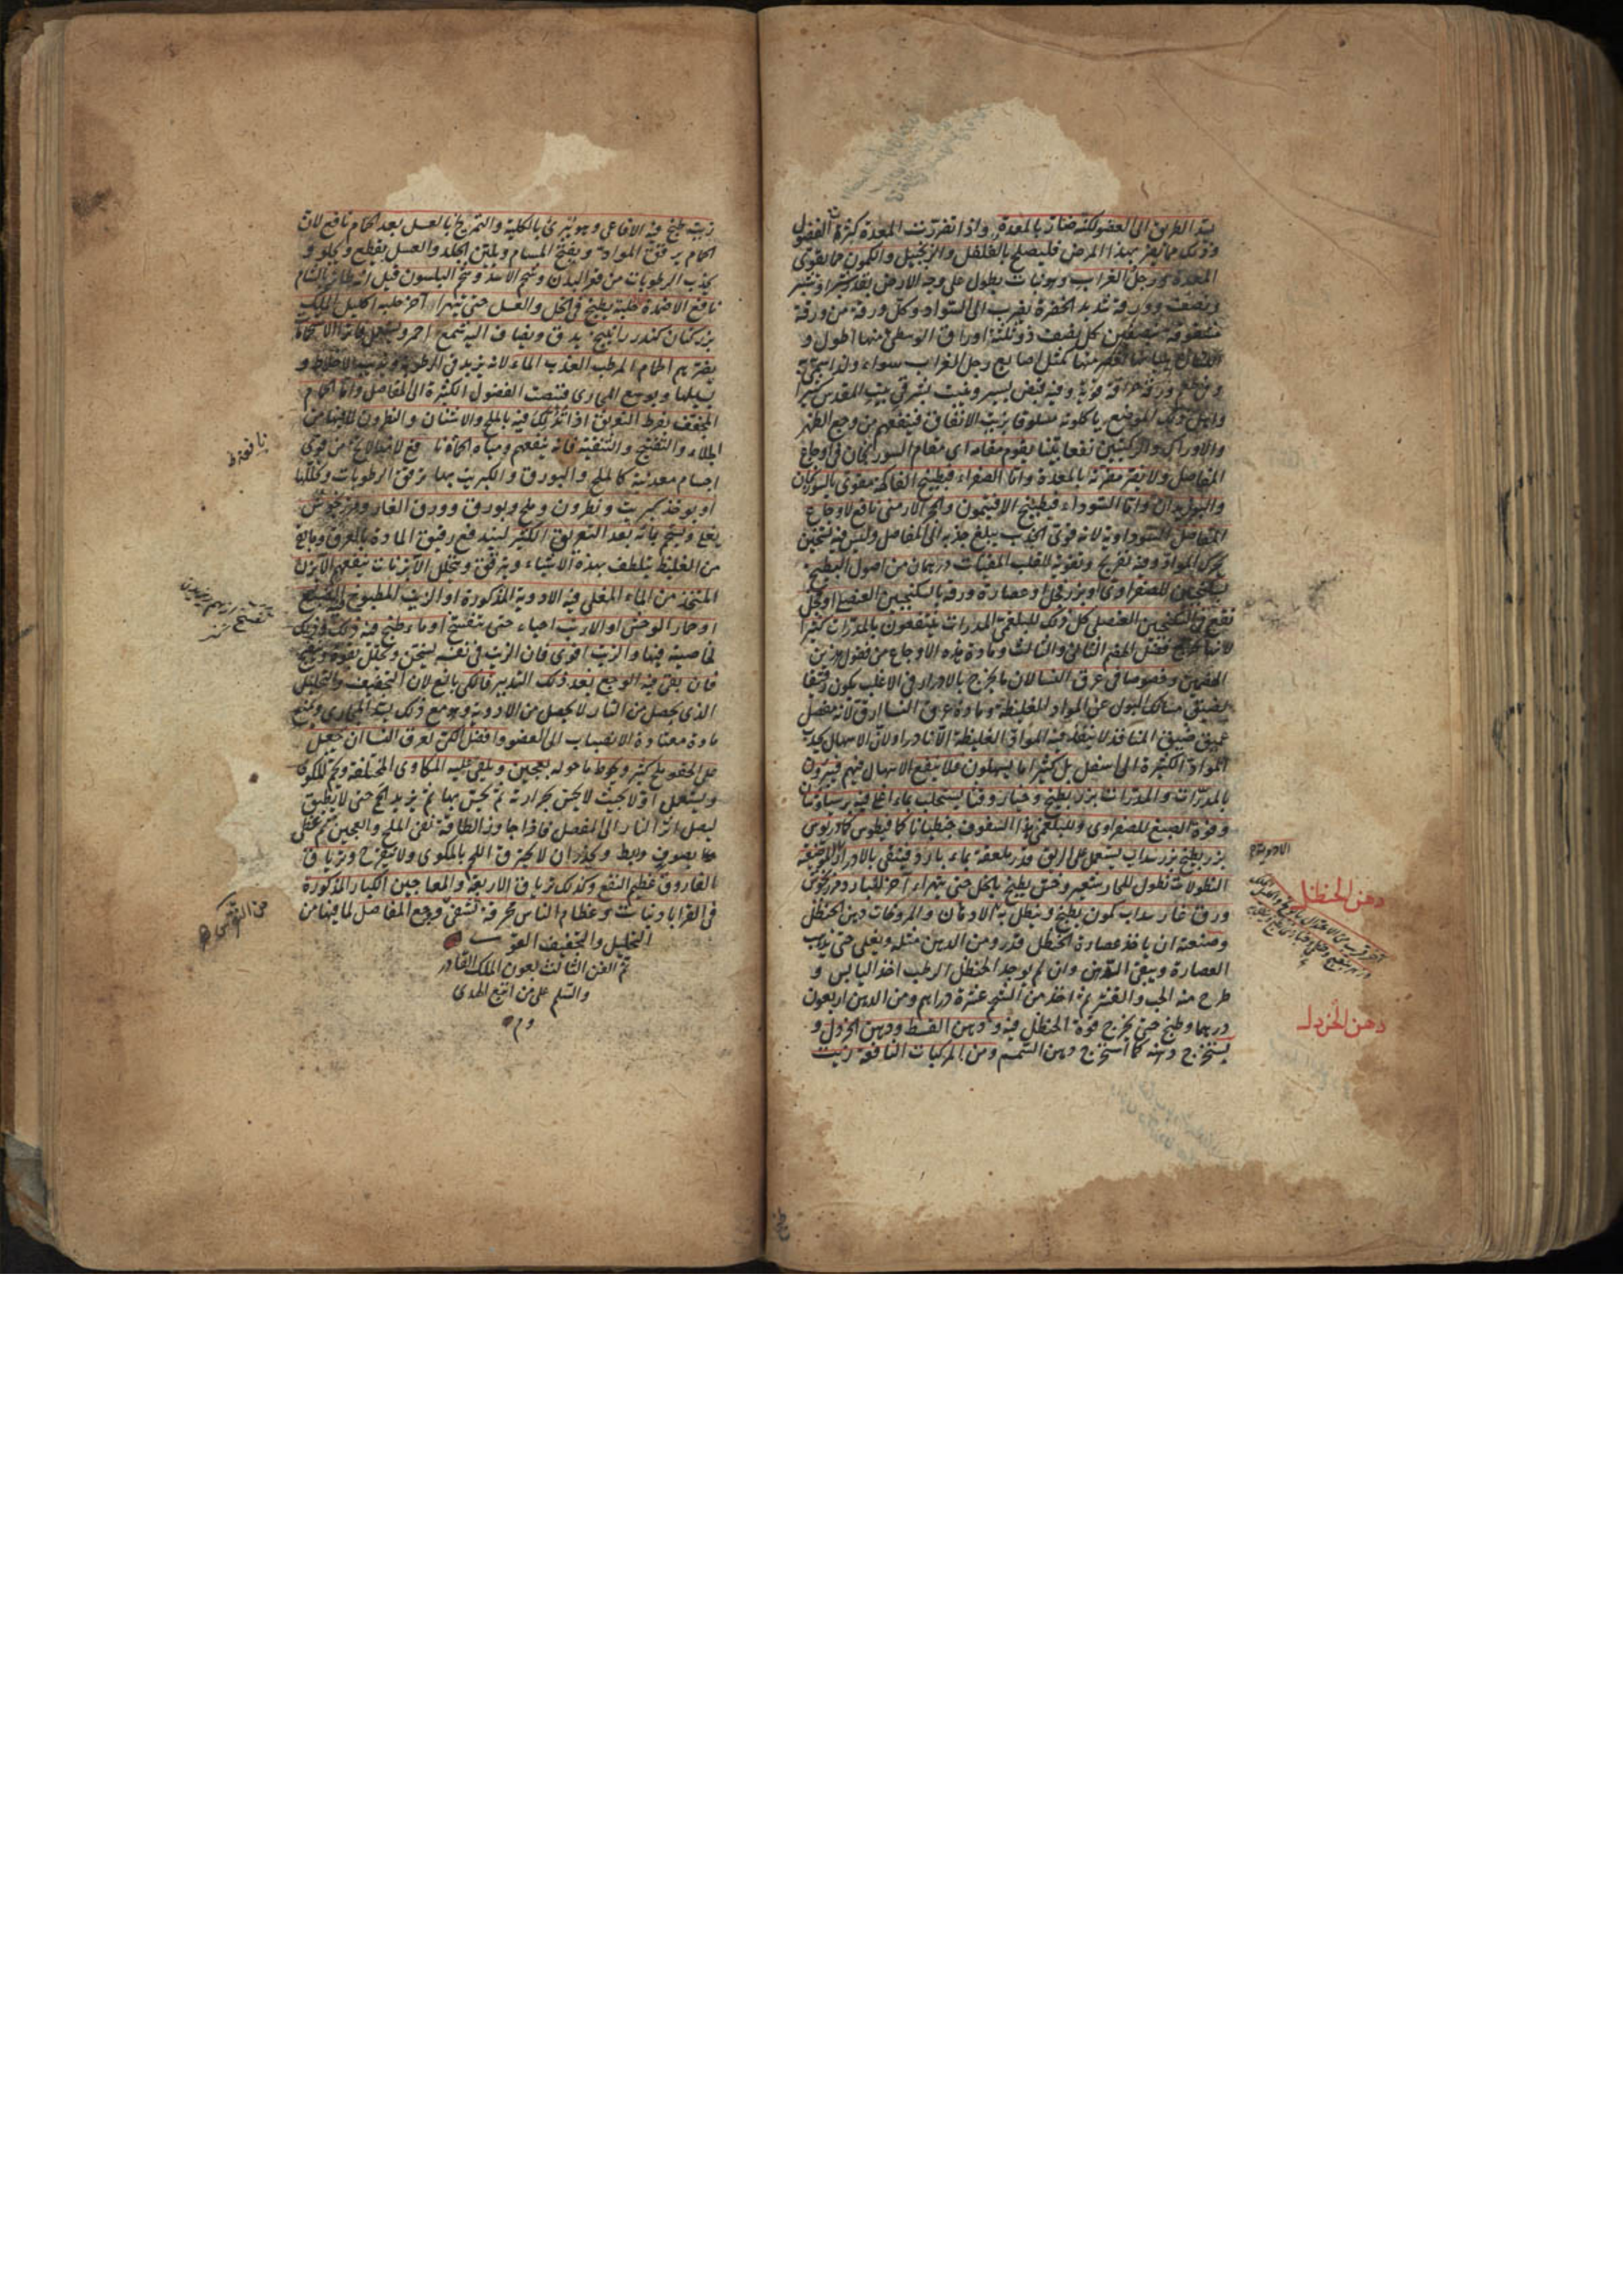 يسد الطريق الى العضو لكنه ضار بالمعدة واذا تضررت المعدة كثرت الفضول
وذلك مما يضر بهذا المرض فليصلح بالفلفل والزنجبيل والكمون مما يقوى
المعدة ورجل الغراب وهو نبات يطول على وجه الارض بقدر شبر او شبر
ونصف وورقه شديد الخضرة يضرب الى السواد وكل ورقة من ورقه
مشقوقة بنصفين كل نصف ذو ثلثة اوراق الوسطى منها اطول و
منها كمثل اصابع رجل الغراب سواء ولذا سمى به
وفى طعم ورقه حرافة قوية وفيه قبض يسير وينبت بشرقى بيت المقدس كثيرا
واهل ذلك الموضع ياكلونه مسلوقا بزيت الانفاق فينفعهم من وجع الظهر
والاوراك والركبتين نفعا بينا يقوم مقامه اى مقام السورنجان فى اوجاع
المفاصل ولا يضر مضرته بالمعدة واما الصفراء فبطبيخ الفاكهة مقوى بالسورنجان
والبوزيدان واما السوداء فبطبيخ الافتيمون والحجر الارمنى نافع لاوجاع
المفاصل السوداوية لانه قوى الجذب يبلغ جذبه الى المفاصل وليس فيه تسخين
يحرك المواد وفيه تفريح وتقوية للقلب المقيئات درهمان من اصول البطيخ
بسكنجبين للصفراوى او بزر فجل او عصارة ورقه بالسكنجبين العنصلى او فجل
نقع فى السكنجبين العنصلى كل ذلك للبلغمى المدرات ينتفعون بالمدرات كثيرا
لانها تخرج فضل الهضم الثانى والثالث ومادة هذه الاوجاع من فضول هذين
الهضمين وخصوصا فى عرق النسا لان ما يخرج بالادرار فى الاغلب يكون رقيقا
لضيق مسالك البول عن المواد الغليظة ومادة عرق النسا ارق لانه مفصل
عميق ضيق المنافذ لا ينفذ فيه المواد الغليظة الا نادرا ولان الاسهال يجذب
المواد الكثيرة الى اسفل بل كثيرا ما يسهلون فلا ينفع الاسهال فيهم فيبرؤن
بالمدرات والمدرات بزر بطيخ وخيار وقثا يستحلب بماء اغلى فيه برسياوشان
وفوة الصبغ للصفراوى وللبلغمى هذا السفوف جنطيانا كمافيطوس كمادريوس
بزر بطيخ بزر سداب يستعمل على الريق قدر ملعقة بماء بارد فينقى بالادرار
النطولات نطول للحار شعير وخس يطبخ بالخل حتى يتهرا آخر للبارد مرزنجوش
ورق غار سداب كمون يطبخ وينطل به الادهان والمروخات دهن الحنظل
وصنعته ان ياخذ عصارة الحنظل قدر ومن الدهن مثله ويغلى حتى يذهب
العصارة ويبقى الدهن وان لم يوجد الحنظل الرطب اخذ اليابس و
طرح منه الحب والقشر ثم اخذ من الشحم عشرة دراهم ومن الدهن اربعون
درهما وطبخ حتى يخرج قوة الحنظل فيه ودهن القسط ودهن الخردل و
يستخرج دهنه كما استخرج دهن السمسم ومن المركبات النافعة زيت
دهن الحنظل
دهن الخردل
زيت طبخ فيه الافاعى وهو يبرئ بالكلية والتمريخ بالعسل بعد الحمام نافع لان
الحمام يرقق المواد ويفتح المسام ويلين الجلد والعسل يقطع ويجلو و
يجذب الرطوبات من قعر البدن وشحم الاسد وشحم البلسون قيل انه طائر بالشام
نافع الاضمدة حلبة يطبخ فى الخل والعسل حتى يتهرا آخر حلبة اكليل الملك
بزر كتان كندر راتينج يدق ويضاف اليه شمع احمر ويستعمل فاترا
يضرهم الحمام المرطب العذب الماء لانه يزيد فى الرطوبة ويذيب الاخلاط و
يسيلها ويوسع المجارى فتنصب الفضول الكثيرة الى المفاصل واما الحمام
المجفف بفرط التعريق اذا تدلك فيه بالملح والاشنان والنطرون لما فيها من
الجلاء والتفتيح والتنقية فانه ينفعهم ومياه الحماة نا فع لاختلاط من قوى
اجسام معدنية كالملح والبورق والكبريت بها يرقق الرطوبات ويحللها
او يوخذ كبريت ونطرون وملح وبورق وورق الغار ومرزنجوش
يغلى ويستحم بمائه بعد التعريق الكثير ليندفع رقيق المادة بالعرق وما بقى
من الغليظ يتلطف بهذه الاشياء ويترقق ويتحلل الآبزنات ينفعهم الآبزن
المتخذ من الماء المغلى فيه الادوية المذكورة او الزيت المطبوخ فيه الضبع
او حمار الوحش او الارنب احياء حتى يتفسخ او ماء طبخ فيه ذلك وذلك
لخاصية فيها والزيت اقوى فان الزيت فى نفسه يسخن ويحلل بقوة
فان بقى فيه الوجع بعد ذلك التدبير فالكى بالغ لان التجفيف والتحليل
الذى يحصل من النار لا يحصل من الادوية وهو مع ذلك يسد المجارى ويمنع
مادة معتادة الانصباب الى العضو وافضل الكى لعرق النسا ان يجعل
على الحقو ملح كثير ويحوط ما حوله بعجين ويلقى عليه المكاوى المختلفة وتحمى المكوى
ويستعمل اولا بحيث لا يحس بحرارته ثم يحس بها ثم يزيد الحمى حتى لا يطيق
ليصل اثر النار الى المفصل فاذا جاوز الطاقة نفض الملح والعجين ثم غطى
بصوف وربط ويحذر ان لا يحترق اللحم بالمكوى ولا يتقرح وترياق
الفاروق عظيم النفع وكذلك ترياق الاربعة والمعاجين الكبار المذكورة
فى القراباذينات وعظام الناس محرقة تشفى وجع المفاصل لما فيها من
التحليل والتجفيف القوى
تم الفن الثالث بعون الملك القادر
والسلم على من اتبع الهدى
م م